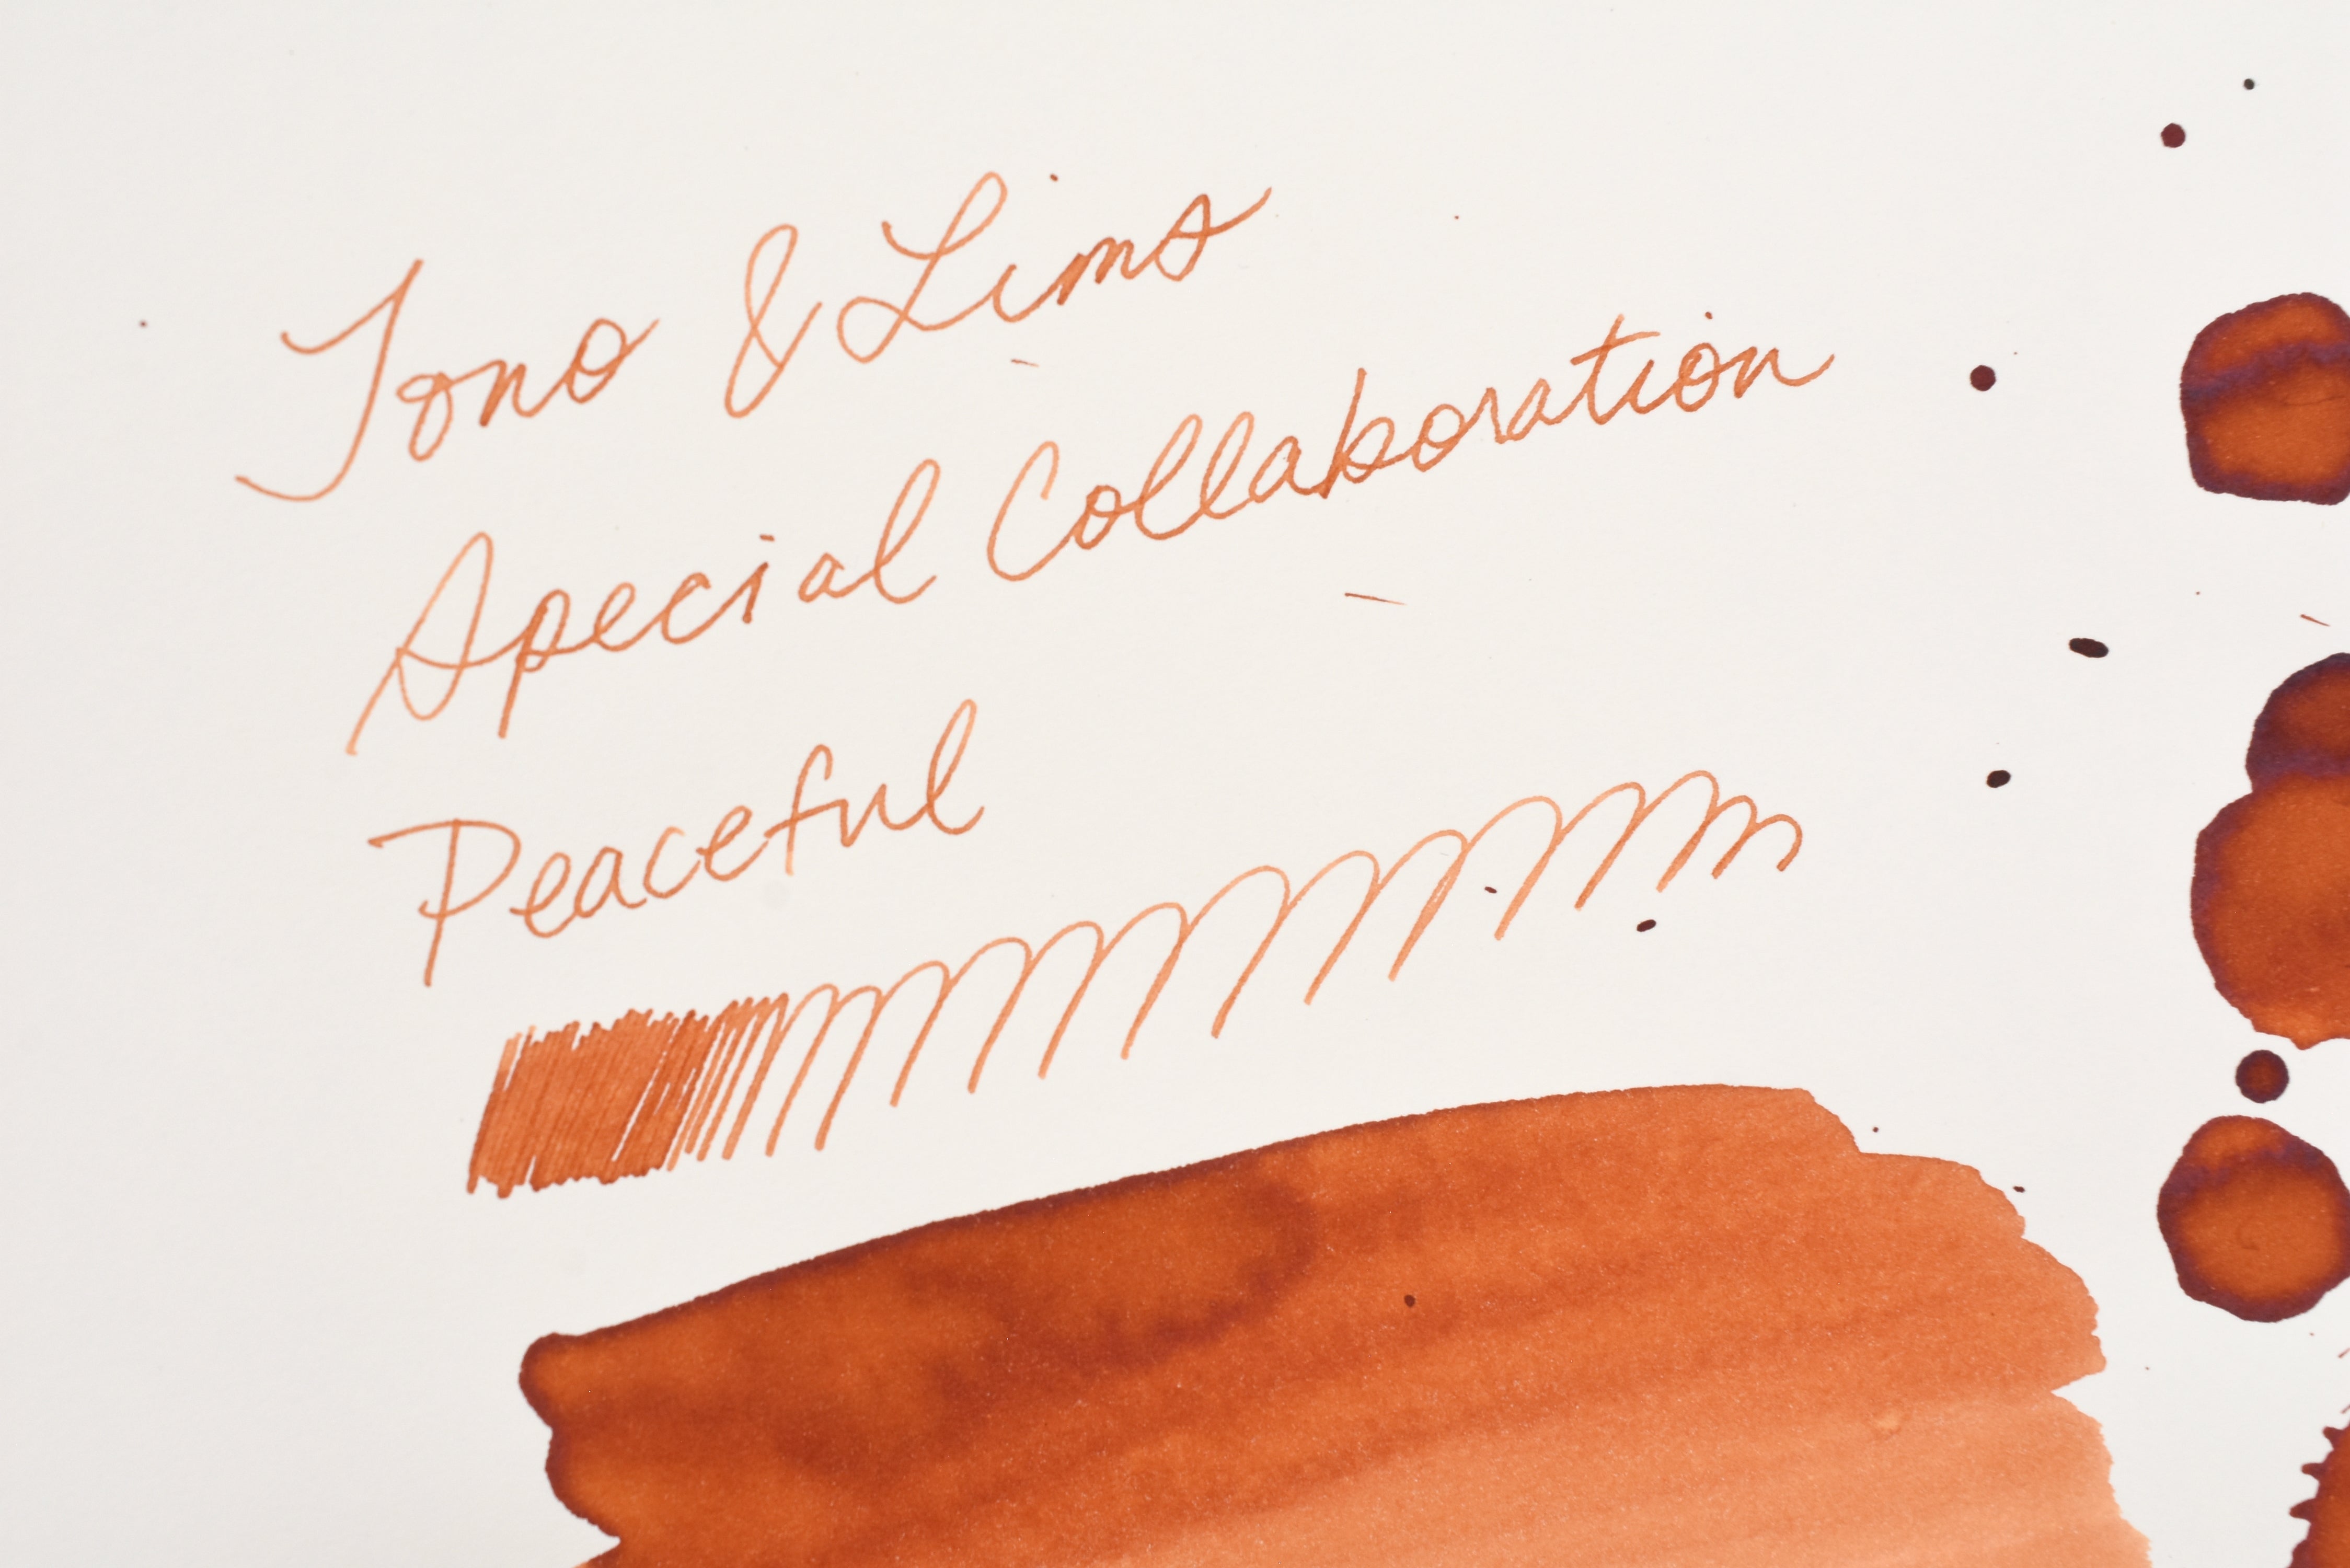 Tono & Lims
Special Collaboration
Peaceful